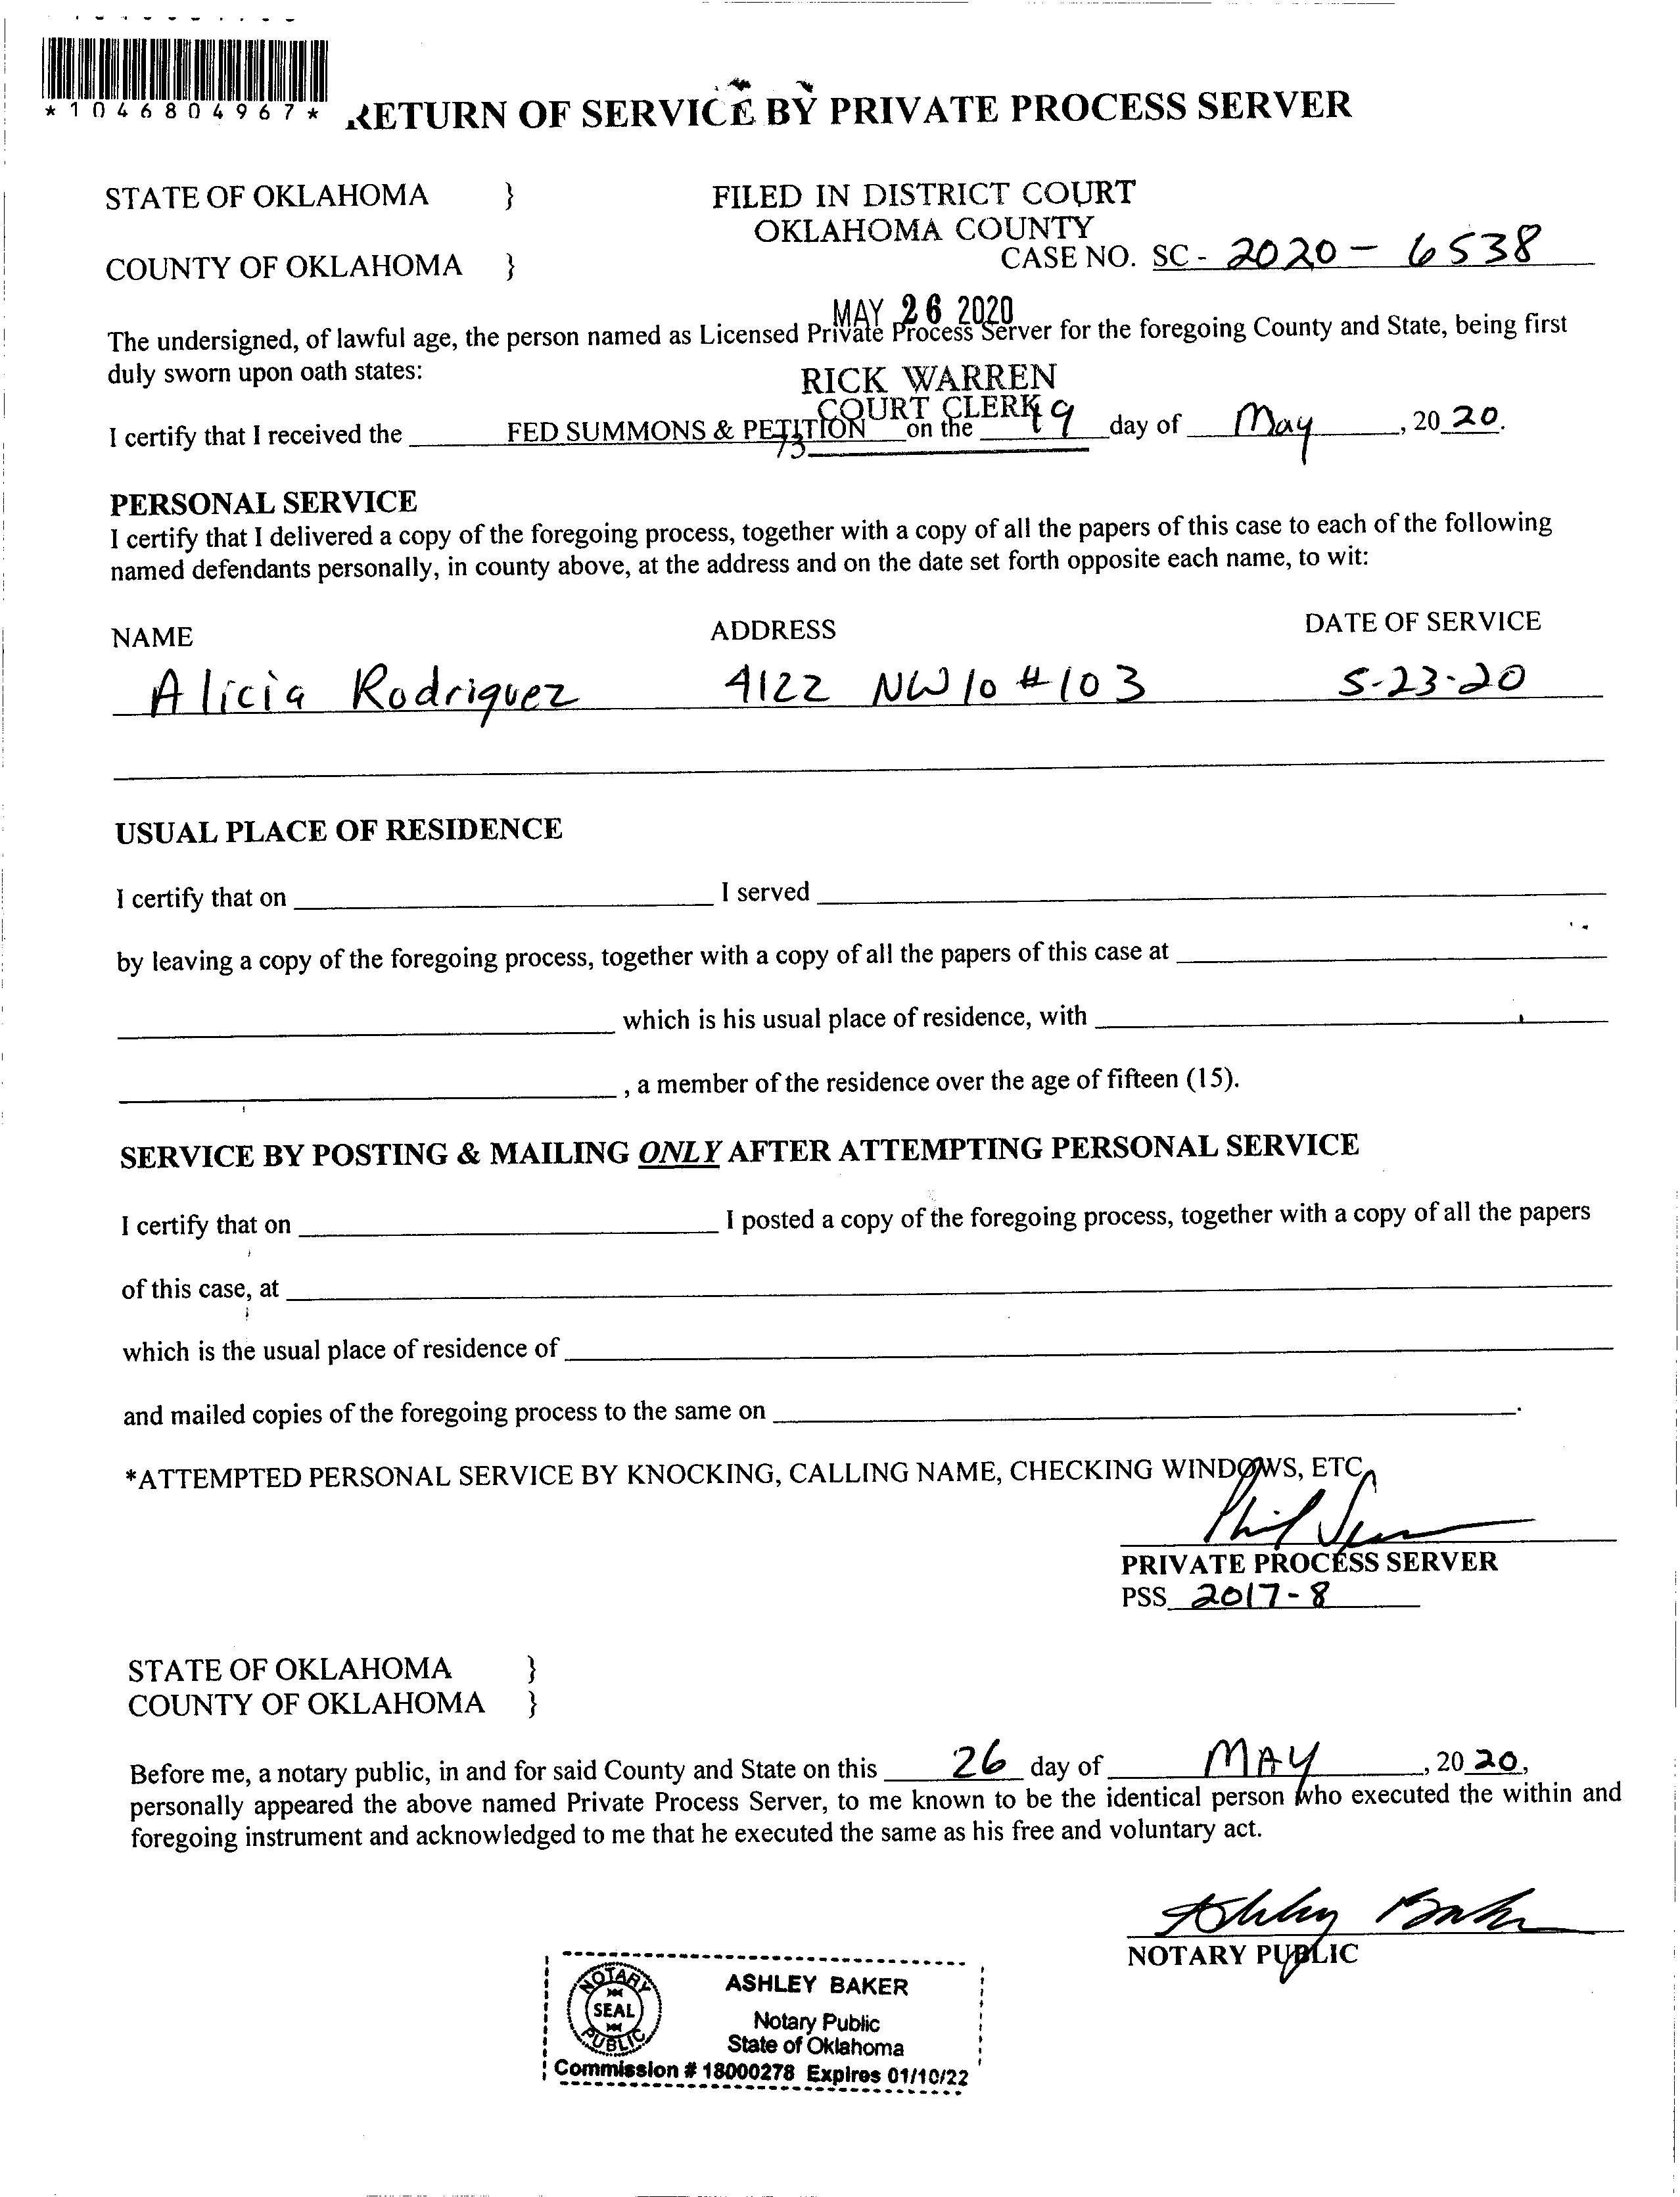 *1046804967*
RETURN OF SERVICE BY PRIVATE PROCESS SERVER
STATE OF OKLAHOMA }
FILED IN DISTRICT COURT
OKLAHOMA COUNTY
COUNTY OF OKLAHOMA }
CASE NO. SC - 2020 - 6538
MAY 26 2020
The undersigned, of lawful age, the person named as Licensed Private Process Server for the foregoing County and State, being first
duly sworn upon oath states:
RICK WARREN
COURT CLERK
I certify that I received the FED SUMMONS & PETITION on the 19 day of May, 20 20.
73
PERSONAL SERVICE
I certify that I delivered a copy of the foregoing process, together with a copy of all the papers of this case to each of the following
named defendants personally, in county above, at the address and on the date set forth opposite each name, to wit:
NAME ADDRESS DATE OF SERVICE
Alicia Rodriguez 4122 NW 10 #103 5-23-20
USUAL PLACE OF RESIDENCE
I certify that on I served
by leaving a copy of the foregoing process, together with a copy of all the papers of this case at
which is his usual place of residence, with
, a member of the residence over the age of fifteen (15).
SERVICE BY POSTING & MAILING ONLY AFTER ATTEMPTING PERSONAL SERVICE
I certify that on I posted a copy of the foregoing process, together with a copy of all the papers
of this case, at
which is the usual place of residence of
and mailed copies of the foregoing process to the same on .
*ATTEMPTED PERSONAL SERVICE BY KNOCKING, CALLING NAME, CHECKING WINDOWS, ETC
PRIVATE PROCESS SERVER
PSS 2017-8
STATE OF OKLAHOMA }
COUNTY OF OKLAHOMA }
Before me, a notary public, in and for said County and State on this 26 day of MAY, 20 20,
personally appeared the above named Private Process Server, to me known to be the identical person who executed the within and
foregoing instrument and acknowledged to me that he executed the same as his free and voluntary act.
Ashley Baker
NOTARY PUBLIC
NOTARY PUBLIC
SEAL
ASHLEY BAKER
Notary Public
State of Oklahoma
Commission # 18000278 Expires 01/10/22